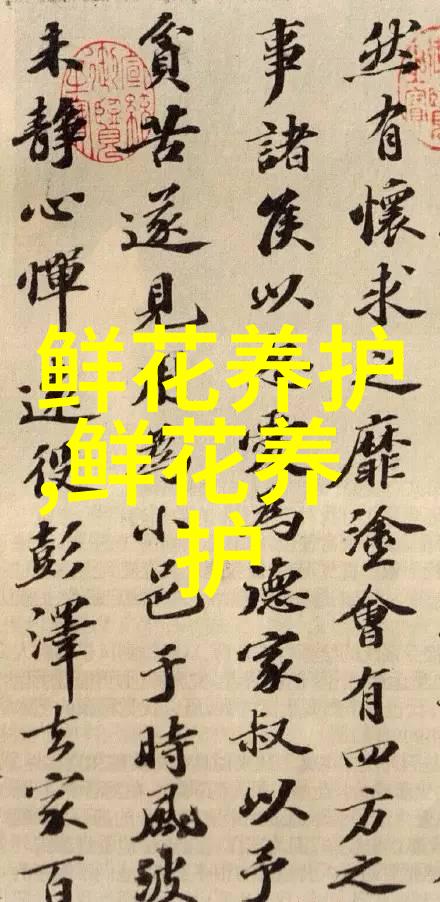 然有懷求之靡塗會有四方之
事諸侯以惠愛為德家叔以予
貧苦遂見用為小邑于時風波
未靜心憚遠役彭澤去家百
鲜花养护
,鲜花养
护